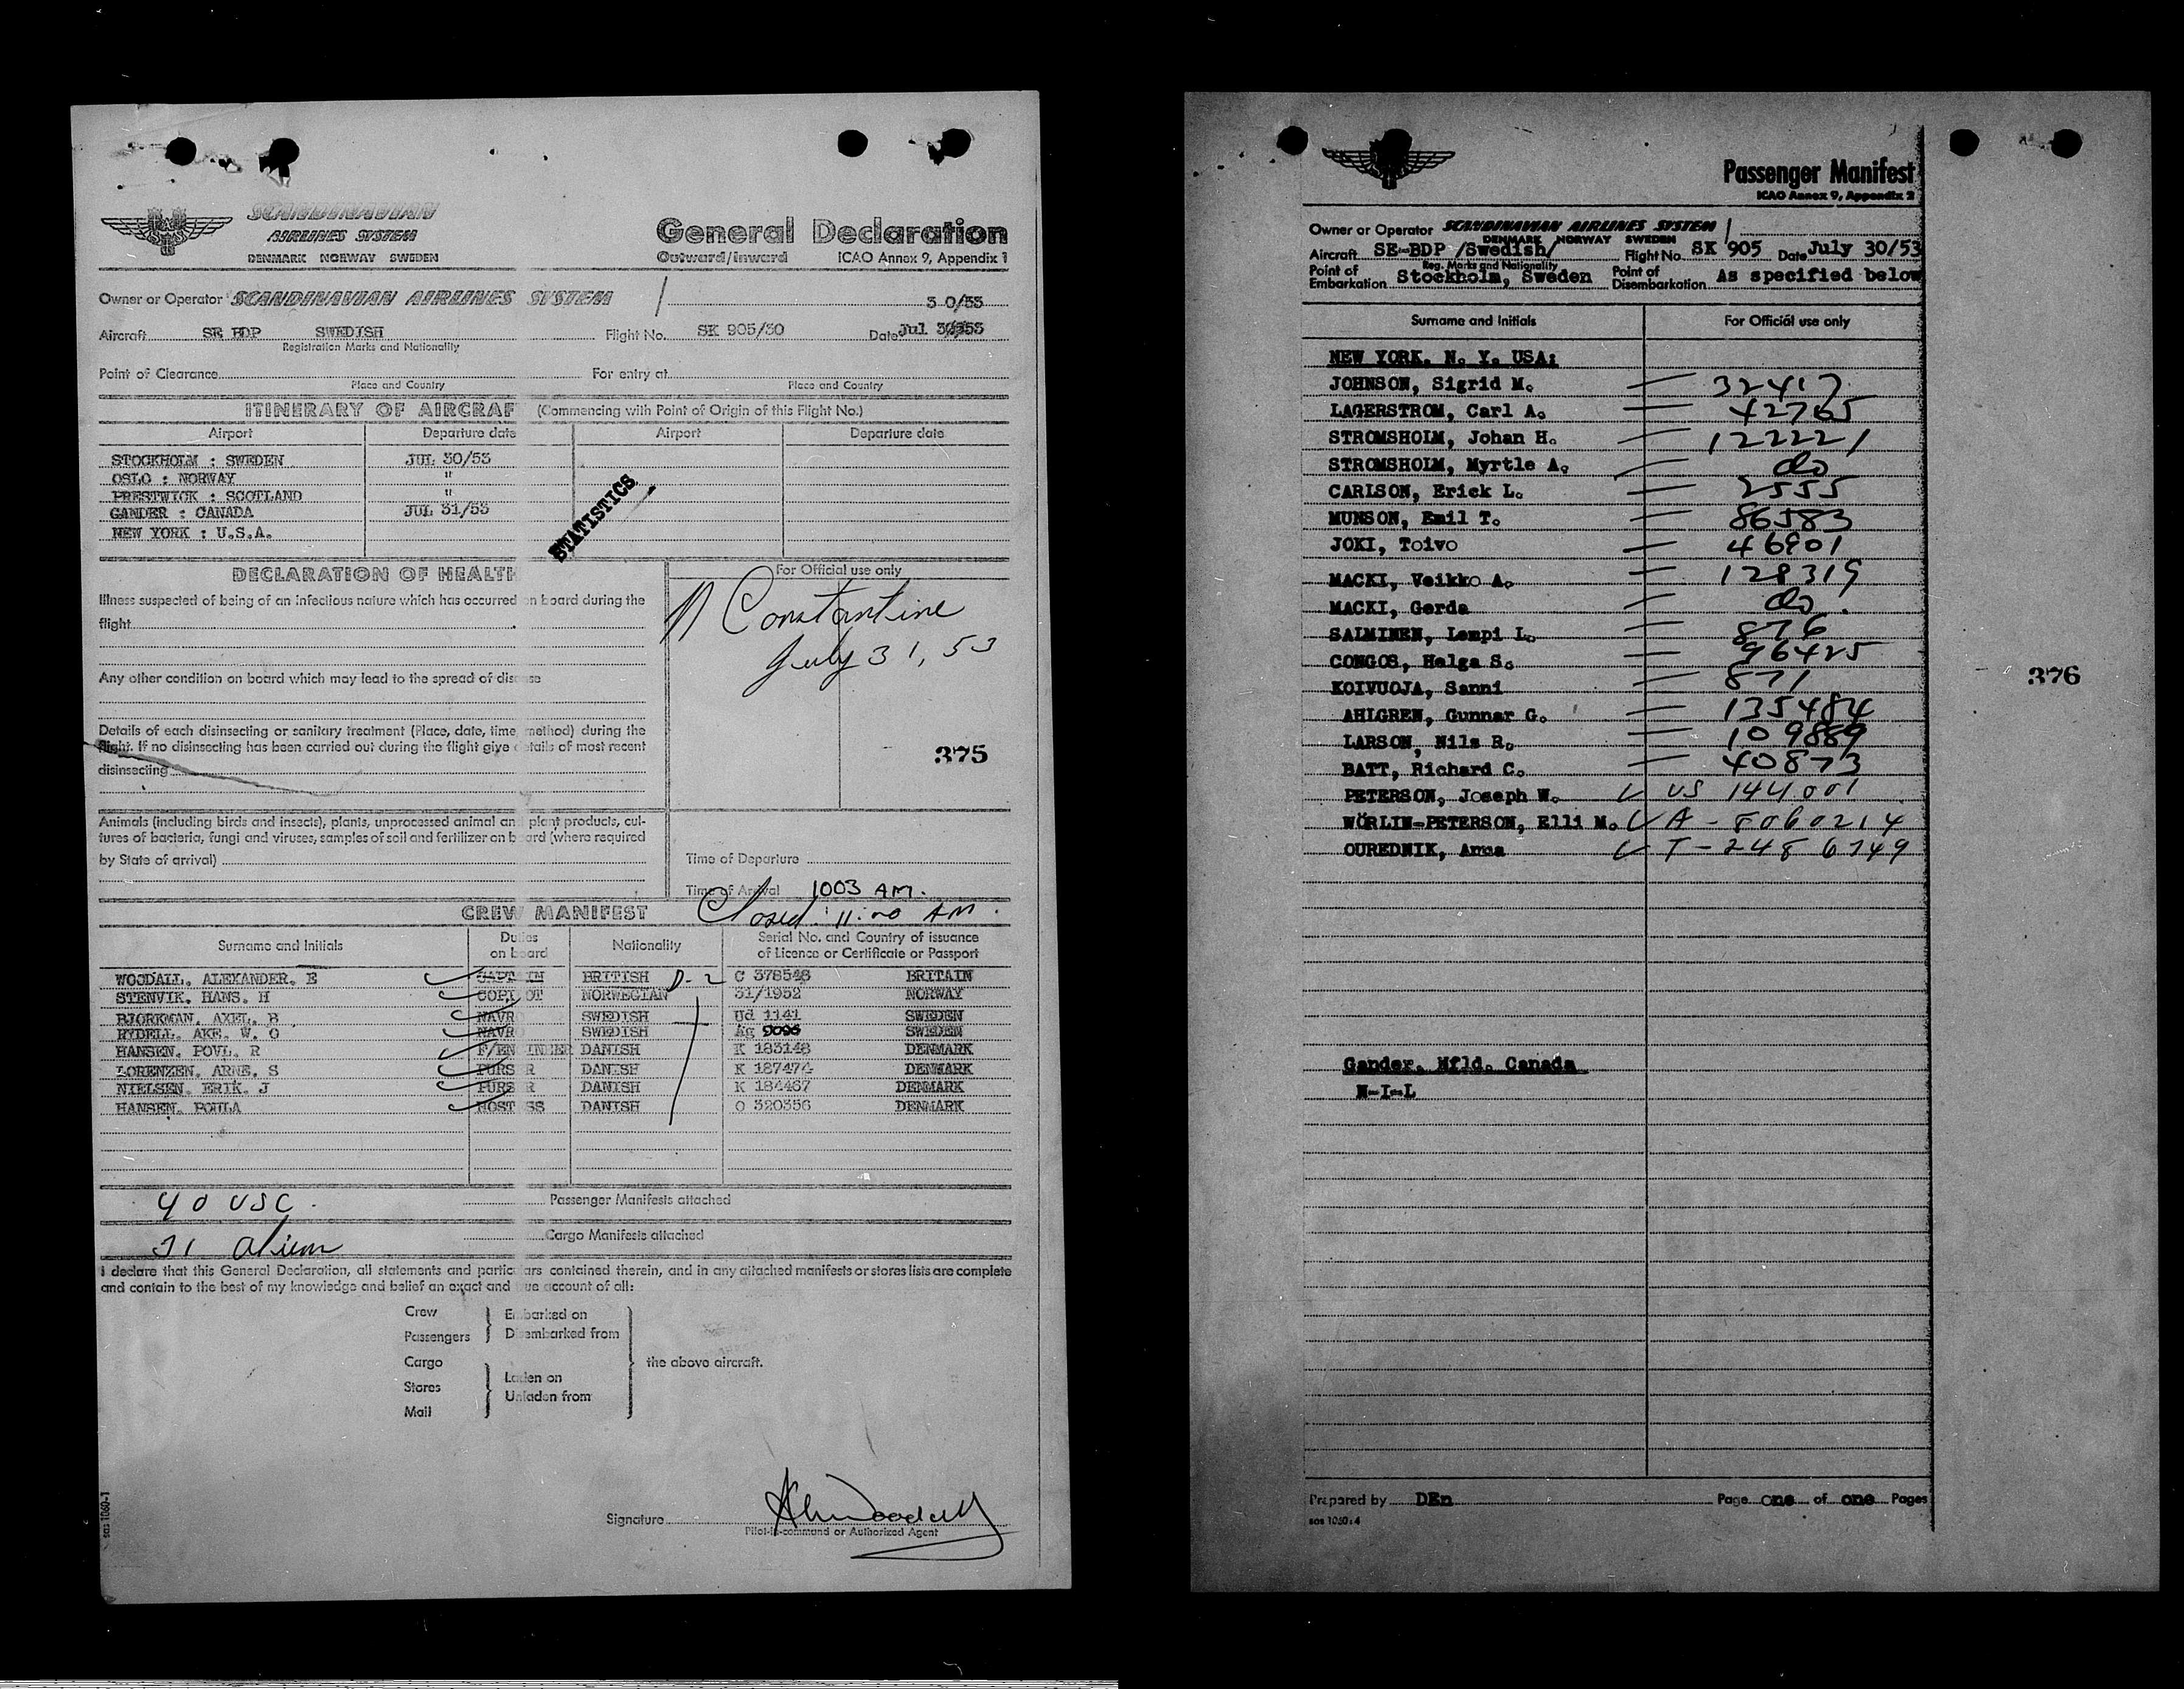 SCANDINAVIAN
AIRLINES SYSTEM
DENMARK NORWAY SWEDEN
General Declaration
Outward/Inward ICAO Annex 9, Appendix 1
Owner or Operator SCANDINAVIAN AIRLINES SYSTEM
3 0/53
Aircraft SE BDP SWEDISH Flight No. SK 905/30 Date Jul
Registration Marks and Nationality
Point of Clearance For entry at
Place and Country Place and Country
ITINERARY OF AIRCRAF (Commencing with Point of Origin of this Flight No.)
Airport Departure date Airport Departure date
STOCKHOLM : SWEDEN JUL 30/53
OSLO : NORWAY "
PRESTWICK : SCOTLAND "
GANDER : CANADA JUL 31/53
NEW YORK : U.S.A.
STATISTICS
DECLARATION OF HEALTH
For Official use only
Illness suspected of being of an infectious nature which has occurred on board during the
flight
Constantine
July 31, 53
Any other condition on board which may lead to the spread of disease
Details of each disinsecting or sanitary treatment (Place, date, time, method) during the
flight. If no disinsecting has been carried out during the flight give details of most recent
disinsecting
375
Animals (including birds and insects), plants, unprocessed animal and plant products, cul-
tures of bacteria, fungi and viruses, samples of soil and fertilizer on board (where required
by State of arrival)
Time of Departure
Time of Arrival 1003 AM.
Closed 11:00 AM.
CREW MANIFEST
Surname and Initials Duties on board Nationality Serial No. and Country of issuance of Licence or Certificate or Passport
WOODALL. ALEXANDER. E CAPT IN BRITISH D-2 C 378548 BRITAIN
STENVIK. HANS. H COPI OT NORWEGIAN 31/1952 NORWAY
BJORKMAN. AXEL. B NAVR SWEDISH Ud 1141 SWEDEN
RYDELL. AKE. W. O NAVR SWEDISH Ag 9096 SWEDEN
HANSEN. POVL. R F/EN INEER DANISH K 183148 DENMARK
LORENZEN. ARNE. S PURS R DANISH K 187474 DENMARK
NIELSEN. ERIK. J PURS R DANISH K 184467 DENMARK
HANSEN. POULA HOST SS DANISH O 320356 DENMARK
40 USC.
Passenger Manifests attached
31 alien
Cargo Manifests attached
I declare that this General Declaration, all statements and particulars contained therein, and in any attached manifests or stores lists are complete
and contain to the best of my knowledge and belief an exact and true account of all:
Crew
Passengers
Embarked on
Disembarked from
Cargo
Stores
Mail
Laden on
Unladen from
the above aircraft.
Signature
Pilot-in-command or Authorized Agent
sas 1060-1
Passenger Manifest
ICAO Annex 9, Appendix 2
Owner or Operator SCANDINAVIAN AIRLINES SYSTEM
DENMARK NORWAY SWEDEN
Aircraft SE-BDP /Swedish/ Flight No. SK 905 Date July 30/53
Reg. Marks and Nationality
Point of Embarkation Stockholm, Sweden Point of Disembarkation As specified below
Surname and Initials For Official use only
NEW YORK. N. Y. USA:
JOHNSON, Sigrid M. 32417
LAGERSTROM, Carl A. 42765
STROMSHOLM, Johan H. 122221
STROMSHOLM, Myrtle A. do
CARLSON, Erick L. 2555
MUNSON, Emil T. 86583
JOKI, Toivo 46901
MACKI, Veikko A. 128319
MACKI, Gerda do.
SALMINEN, Lempi L. 876
CONGOS, Helga S. 96425
KOIVUOJA, Sanni 871
AHLGREN, Gunnar G. 135484
LARSON, Nils R. 109889
BATT, Richard C. 40873
PETERSON, Joseph W. US 144001
WÖRLIN-PETERSON, Elli M. A - 8060214
OUREDNIK, Anna T - 2486749
376
Gander. Nfld. Canada
N-I-L
Prepared by DEn Page one of one Pages
sas 1060:4